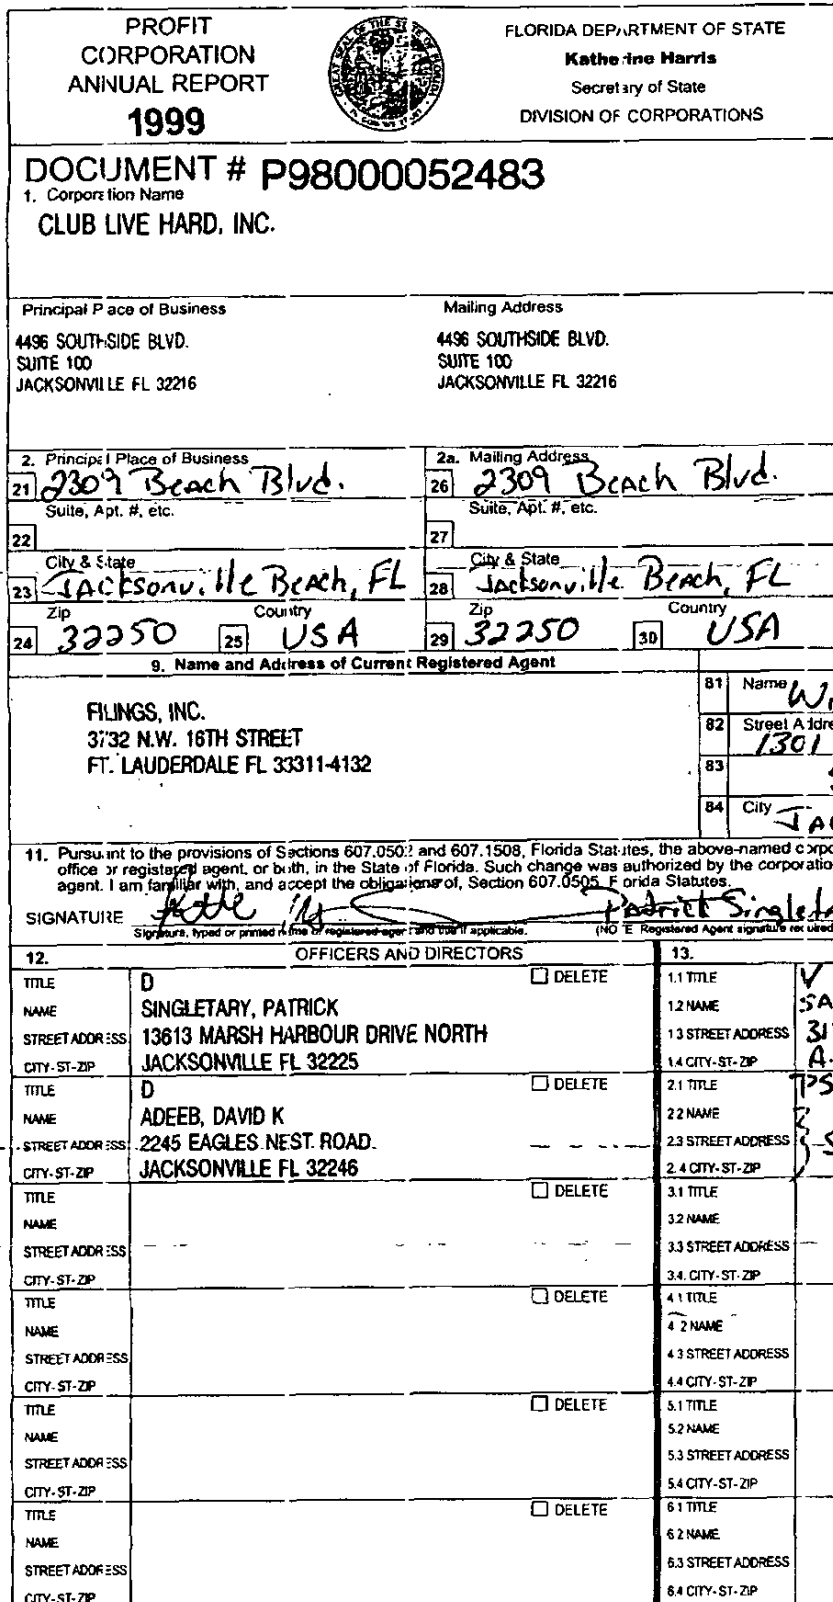 PROFIT
CORPORATION
ANNUAL REPORT
1999
FLORIDA DEPARTMENT OF STATE
Katherine Harris
Secretary of State
DIVISION OF CORPORATIONS
DOCUMENT # P98000052483
1. Corporation Name
CLUB LIVE HARD, INC.
Principal Place of Business
Mailing Address
4496 SOUTHSIDE BLVD.
SUITE 100
JACKSONVILLE FL 32216
4496 SOUTHSIDE BLVD.
SUITE 100
JACKSONVILLE FL 32216
2. Principal Place of Business
2a. Mailing Address
21 2309 Beach Blvd.
26 2309 Beach Blvd.
Suite, Apt. #, etc.
Suite, Apt. #, etc.
22
27
City & State
City & State
23 Jacksonville Beach, FL
28 Jacksonville Beach, FL
Zip Country
Zip Country
24 32250 25 USA
29 32250 30 USA
9. Name and Address of Current Registered Agent
FILINGS, INC.
3732 N.W. 16TH STREET
FT. LAUDERDALE FL 33311-4132
81 Name
82 Street Addre
1301
83
84 City
11. Pursuant to the provisions of Sections 607.0502 and 607.1508, Florida Statutes, the above-named corpo
office or registered agent, or both, in the State of Florida. Such change was authorized by the corporatio
agent. I am familiar with, and accept the obligations of, Section 607.0505, Florida Statutes.
SIGNATURE Patrick Singleta
Signature, typed or printed name of registered agent and title if applicable. (NOTE Registered Agent signature required
12. OFFICERS AND DIRECTORS 13.
TITLE D DELETE
NAME SINGLETARY, PATRICK
STREET ADDRESS 13613 MARSH HARBOUR DRIVE NORTH
CITY-ST-ZIP JACKSONVILLE FL 32225
1.1 TITLE V
1.2 NAME SA
1.3 STREET ADDRESS 31
1.4 CITY-ST-ZIP A
TITLE D DELETE
NAME ADEEB, DAVID K
STREET ADDRESS 2245 EAGLES NEST ROAD
CITY-ST-ZIP JACKSONVILLE FL 32246
2.1 TITLE PS
2.2 NAME
2.3 STREET ADDRESS
2.4 CITY-ST-ZIP
TITLE DELETE
NAME
STREET ADDRESS
CITY-ST-ZIP
3.1 TITLE
3.2 NAME
3.3 STREET ADDRESS
3.4. CITY-ST-ZIP
TITLE DELETE
NAME
STREET ADDRESS
CITY-ST-ZIP
4.1 TITLE
4.2 NAME
4.3 STREET ADDRESS
4.4 CITY-ST-ZIP
TITLE DELETE
NAME
STREET ADDRESS
CITY-ST-ZIP
5.1 TITLE
5.2 NAME
5.3 STREET ADDRESS
5.4 CITY-ST-ZIP
TITLE DELETE
NAME
STREET ADDRESS
CITY-ST-ZIP
6.1 TITLE
6.2 NAME
6.3 STREET ADDRESS
6.4 CITY-ST-ZIP